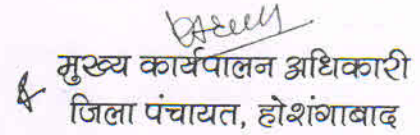 मुख्य कार्यपालन अधिकारी
जिला पंचायत, होशंगाबाद